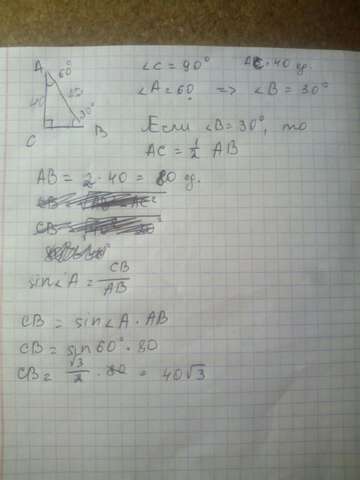 A 60° ∠C = 90° AC = 40 ед.
40 80 ∠A = 60° => ∠B = 30°
30°
C B Если ∠B = 30°, то
AC = 1/2 AB
AB = 2 · 40 = 80 ед.
sin∠A = CB/AB
CB = sin∠A · AB
CB = sin 60° · 80
CB = √3/2 · 80 = 40√3